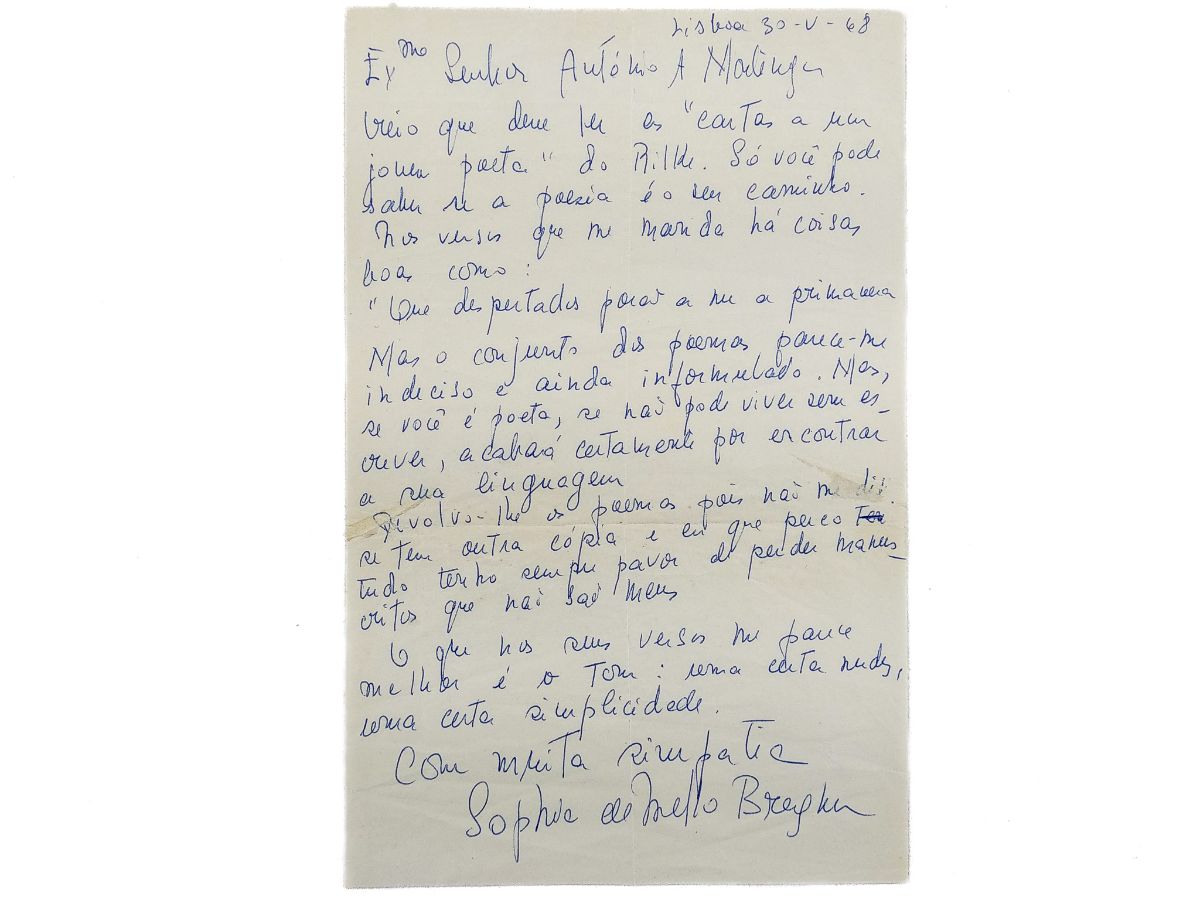 Lisboa 30-V-68
Exmo Senhor António A
Creio que deve ler as "cartas a um
jovem poeta" do Rilke. Só você pode
saber se a poesia é o seu caminho.
Nos versos que me manda há coisas
boas como:
"Que despertados para a a primavera
Mas o conjunto dos poemas parece-me
indeciso e ainda informulado. Mas,
se você é poeta, se não pode viver sem es-
crever, acabará certamente por encontrar
a sua linguagem
Devolvo-lhe os poemas pois não me diz
se tem outra cópia e eu que perco
tudo tenho sempre pavor de perder manus-
critos que não são meus
O que nos seus versos me parece
melhor é o tom: uma certa nudez,
uma certa simplicidade.
Com muita simpatia
Sophia de Mello Breyner